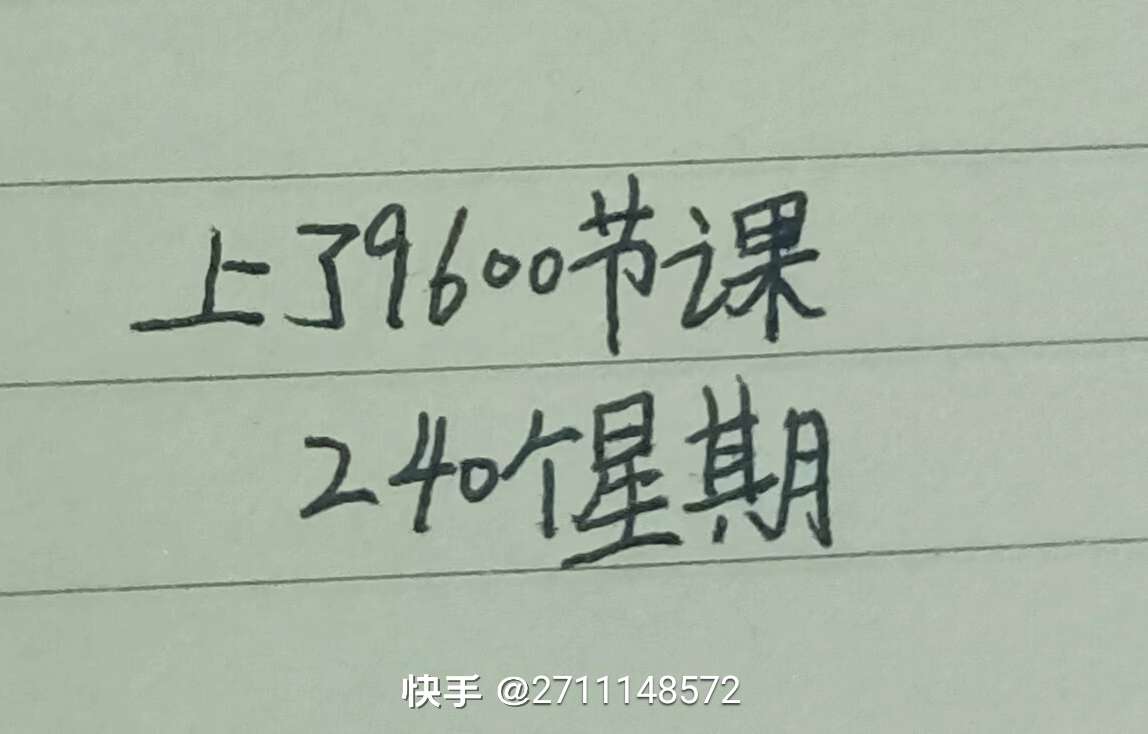 上了9600节课
240个星期
快手 @2711148572